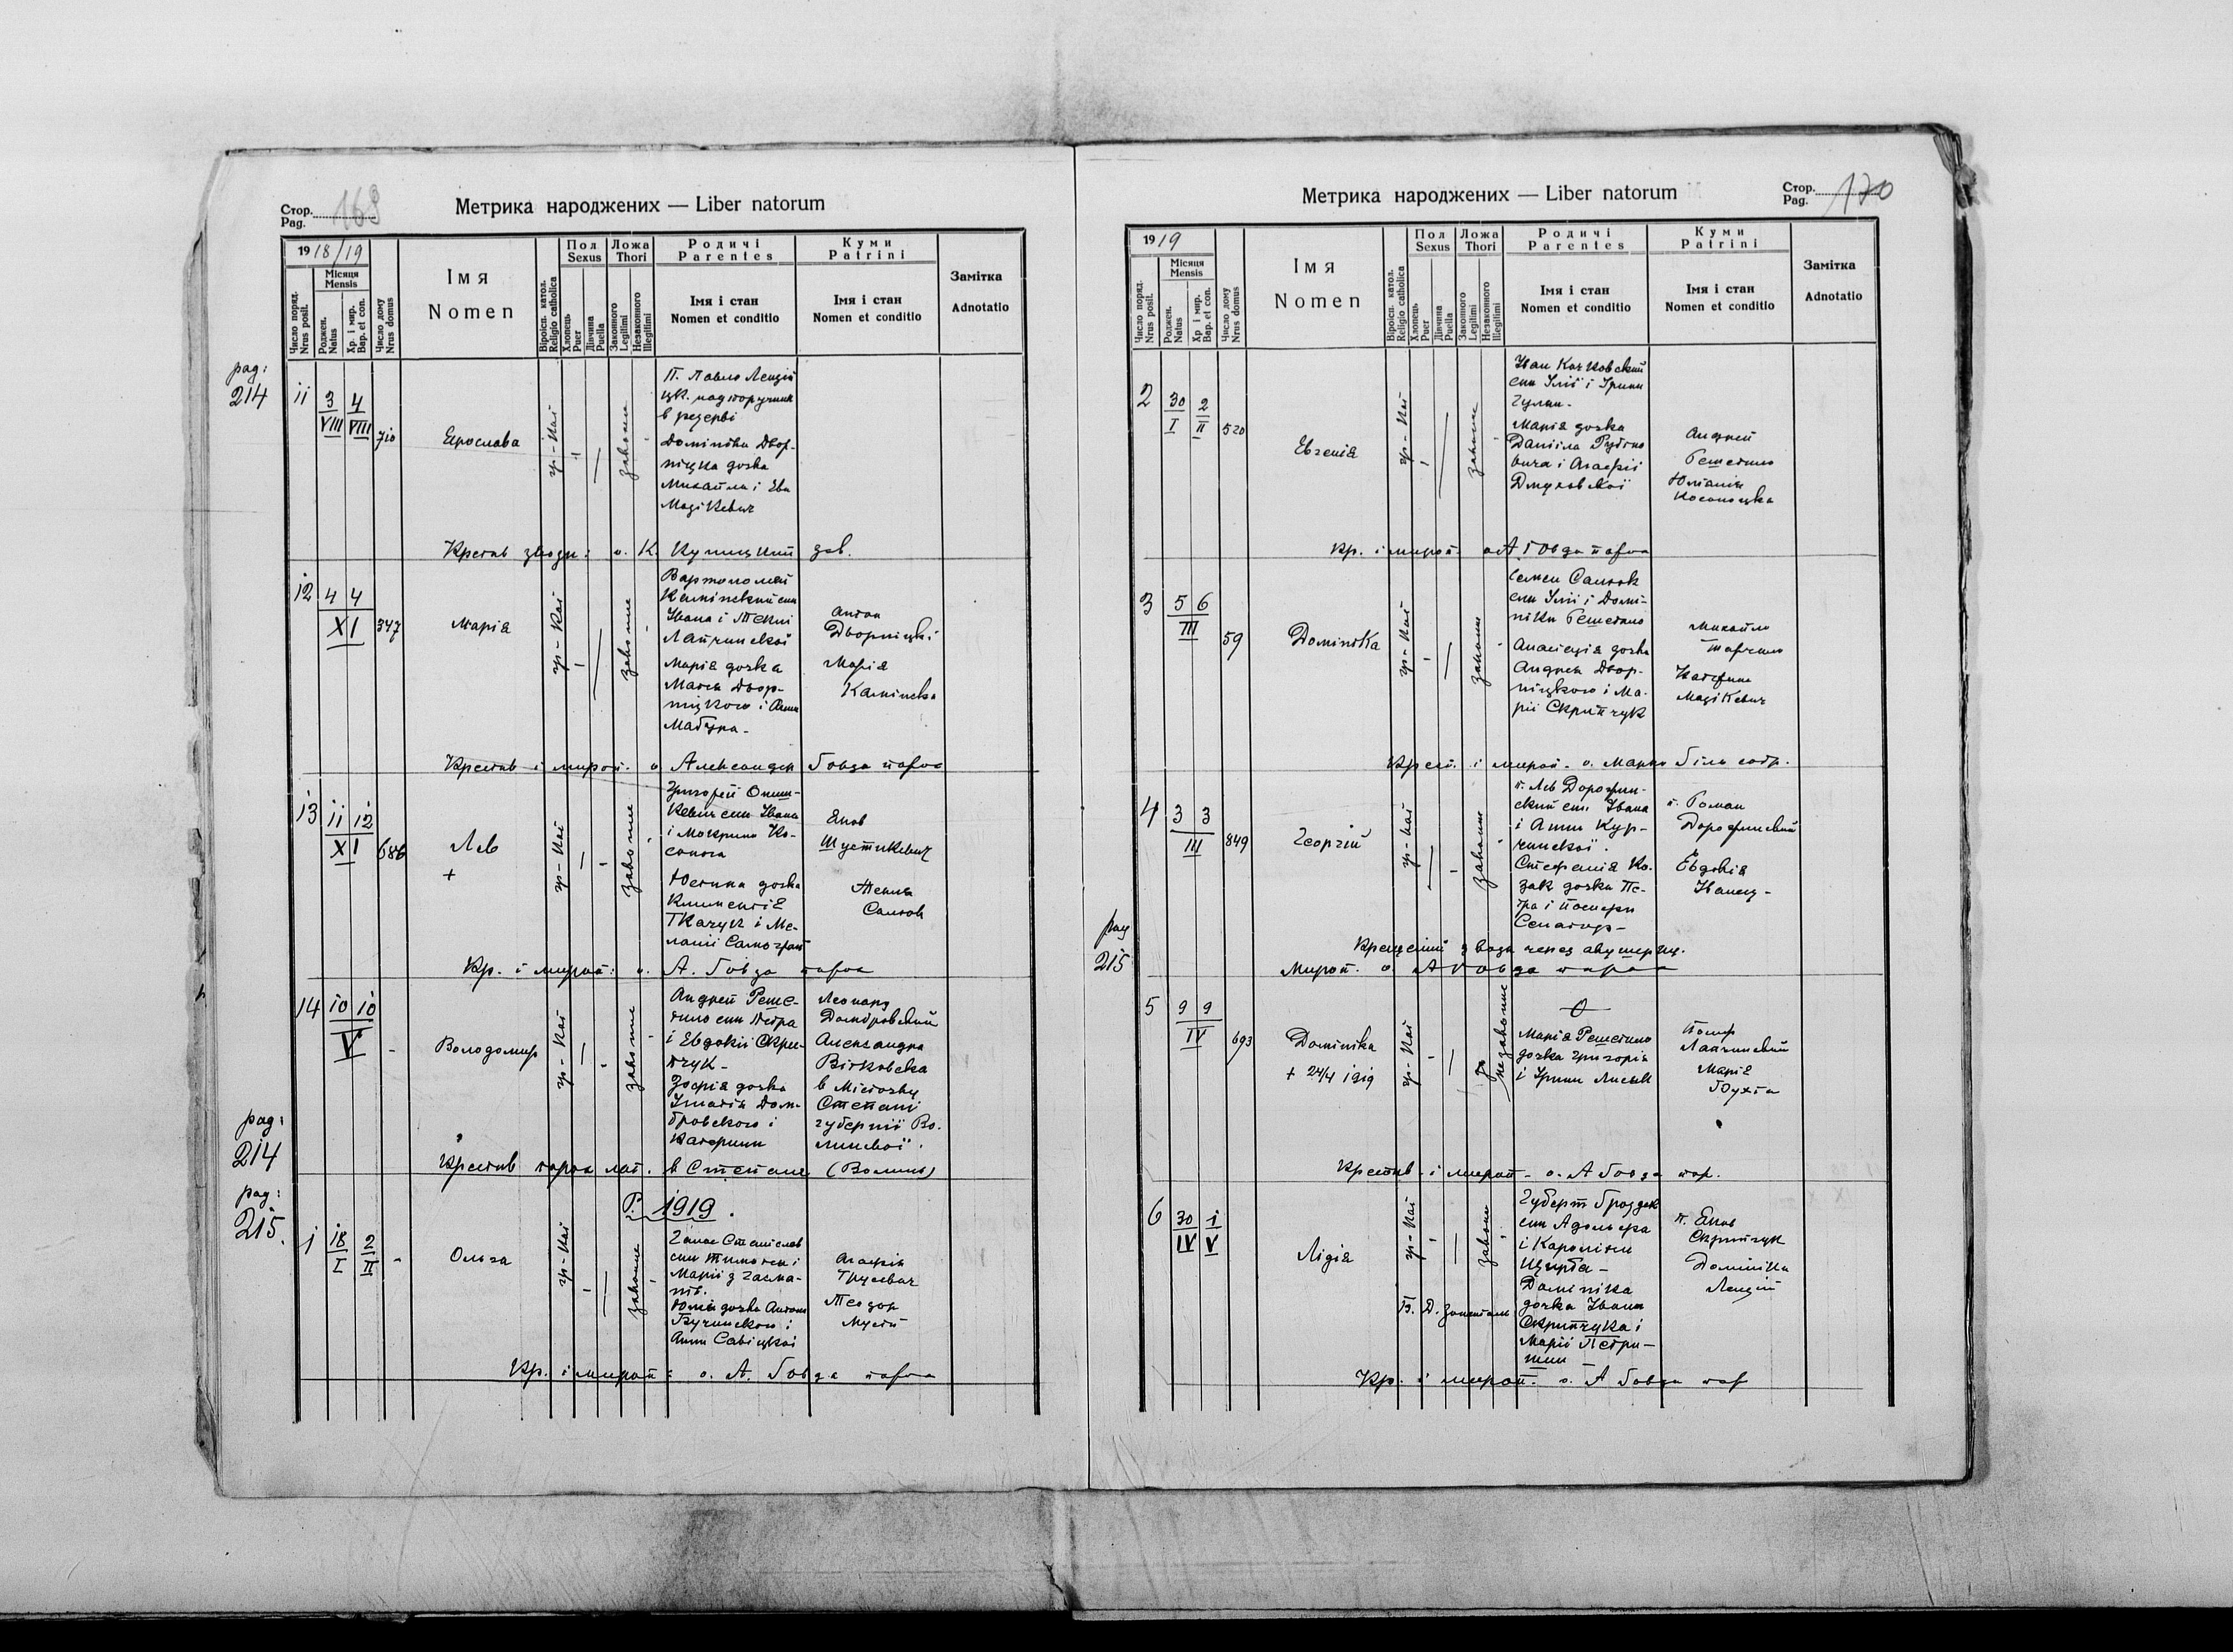 Стор. 169
Pag.
Метрика народжених — Liber natorum
1918/19
Місяця
Mensis
Число поряд.
Nrus posit.
Роджен.
Natus
Хр. і мир.
Bap. et con.
Число дому
Nrus domus
Імя
Nomen
Віроісп. катол.
Religio catholica
Пол
Sexus
Хлопець
Puer
Дівчина
Puella
Ложа
Thori
Законного
Legitimi
Незаконного
Illegitimi
Родичі
Parentes
Імя і стан
Nomen et conditio
Куми
Patrini
Імя і стан
Nomen et conditio
Замітка
Adnotatio
pag:
214
11 3 4
VIII VIII
710
Ярослава
гр-кат
законне
П. Павло Лещій
цк. надпоручник
в резерві
Домініка Двор-
ніцка дочка
Михайла і Еви
Мацікевич
Крестив з води: о. К. Куницкий зав.
12 4 4
XI
347
Марія
гр-кат
законне
Вартоломей
Камінский син
Івана і Теклі
Лапчинскої
Марія дочка
Матея Двор-
ніцкого і Анни
Антон
Дворніцкі
Марія
Камінска
Крестив і миропом. о Александер Говда парох
13 11 12
XI
686
Лев
+
гр-кат
законне
Григорей Ониш-
кевич син Івана
і Мокрини Ко-
сонога
Юстина дочка
Климентія
Ткачук і Ме-
ланії
Яков
Шустикевич
Текля
Салюк
Кр. і мироп: о. А. Говда парох
14 10 10
V
-
Володомир
гр-кат
законне
Андрей Реше-
тило син Петра
і Евдокії Скрип-
чук-
Зофія дочка
Ігнатія Дом-
бровского і
Катерини
Леонард
Домбровский
Александра
Вітковска
в Місточку
Степані
губернії Во-
линскої.
pag:
214
Крестив парох лат. в Степани (Волинь)
Р. 1919.
pag:
215.
1 18 2
I II
-
Ольга
гр-кат
законне
Станіслав
син Тимотея і
Марії з Гасма-
нів.
Юлія дочка Антона
Бучинского і
Анни Савіцкої
Агафія
Трусевич
Теодор
Мусій
Кр. і мироп: о. А. Говда парох
Метрика народжених — Liber natorum
Стор. 170
Pag.
1919
Місяця
Mensis
Число поряд.
Nrus posit.
Роджен.
Natus
Хр і мир.
Bap. et con.
Число дому
Nrus domus
Імя
Nomen
Віроісп. катол.
Religio catholica
Пол
Sexus
Хлопець
Puer
Дівчина
Puella
Ложа
Thori
Законного
Legitimi
Незаконного
Illegitimi
Родичі
Parentes
Імя і стан
Nomen et conditio
Куми
Patrini
Імя і стан
Nomen et conditio
Замітка
Adnotatio
2 30 2
I II
520
Евгенія
гр-кат
законне
Іван Качковский
син Ілії і Ірини
Гулин-
Марія дочка
Даніїла Рубіно
вича і Агафії
Дмуховскої
Андрей
Решетило
Юліанія
Косоноцка
Кр. і мироп: о А Говда парох
3 5 6
III
59
Domіnіка
гр-кат
законне
Семен Салюк
син Ілії і Домі-
ніки Решетило
Анастазія дочка
Андрея Двор-
ніцкого і Ма-
рії Скрипчук
Михайло
Катерина
Мацікевич
Крест. і мироп. о. Марко Гіль сотр.
4 3 3
III
849
Георгій
гр-кат
законне
п. Лев Дорофин-
ский син Івана
і Анни Кур-
чинскої.
Стефанія Ко-
зак дочка Пе-
тра і Йосифи
Сенатор-
п. Роман
Дорофинский
Евдокія
Іванец-
pag
215
Крещений з води через акушерку.
Мироп. о А Говда парох
5 9 9
IV
693
Dominіka
+ 24/4 1919
гр-кат
незаконне
Марія Решетило
дочка Григорія
і Ірини Лисик
Йосиф
Лапчинский
Марія
Бухта
Крестив і мироп - о. А Говда пар.
6 30 1
IV V
Лідія
гр-кат
законне
Губерт Броздек
син Адольфа
і Каролїни
Щирба-
Домініка
дочка Івана
Скрипчука і
Марії Петри-
шин
п. Яков
Скрипчук
Домініка
Лещій
Кр. і мироп. о. А Говда пар